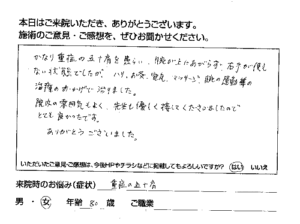 本日はご来院いただき、ありがとうございます。
施術のご意見・ご感想を、ぜひお聞かせください。
かなり重症の五十肩を患い、腕が上にあがらず、
ない状態でしたが、ハリ、お灸、電気、マッサージ、
治療のおかげで治りました。
院内の雰囲気もよく、先生も優しく接してくださいましたので
とても良かったです。
ありがとうございました。
いただいたご意見・ご感想は、今後HPやチラシなどに記載してもよろしいですか？ はい いいえ
来院時のお悩み(症状) 重症の五十肩
男・女 年齢 80 歳 ご職業